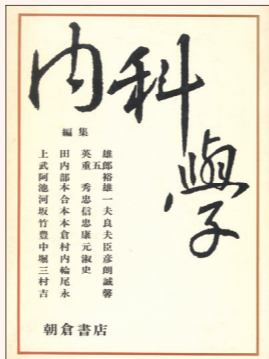 内科學
編集
上田英雄
武内重五郎
阿部裕
池本秀雄
河合忠一
坂本信夫
竹本忠良
豊倉康夫
中村元臣
堀内淑彦
三輪史朗
村尾誠
吉永馨
朝倉書店